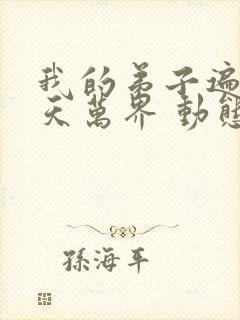 我的弟子遍
天萬界 動態
孫海平